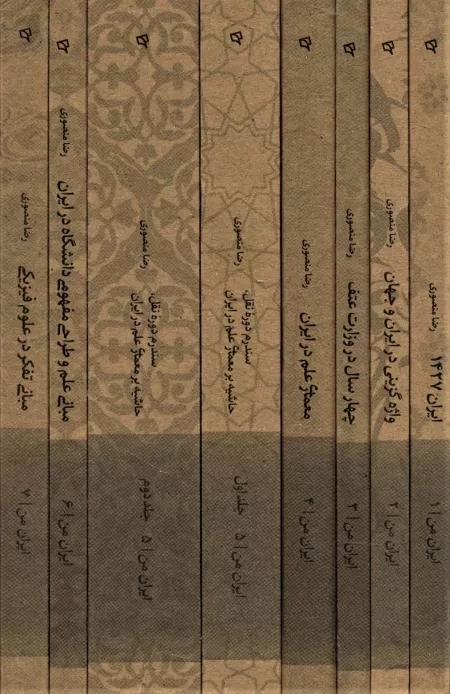 ایران ۱۴۲۷
رضا منصوری
ایران من | ۱
واژه گزینی در ایران و جهان
رضا منصوری
ایران من | ۲
چهار سال در وزارت عتف
رضا منصوری
ایران من | ۳
معماری علم در ایران
رضا منصوری
ایران من | ۴
رضا منصوری
سندرم دورهٔ نقل،
حاشیه بر معماری علم در ایران
ایران من | ۵ جلد اول
رضا منصوری
سندرم دورهٔ نقل،
حاشیه بر معماری علم در ایران
ایران من | ۵ جلد دوم
مبانی علم و طراحی مفهومی دانشگاه در ایران
رضا منصوری
ایران من | ۶
مبانی تفکر در علوم فیزیکی
رضا منصوری
ایران من | ۷